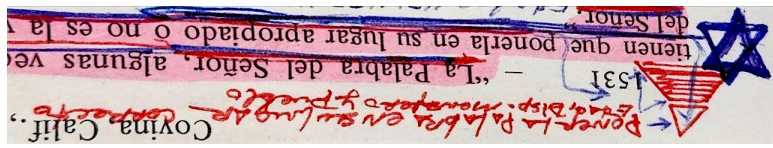 Covina, Calif.,
Poner La Palabra en su lugar correcto
Edad, Disp. Mensajero y Pueblo
1531 – “La Palabra del Señor, algunas vec
tienen que ponerla en su lugar apropiado o no es la v
del Señor”